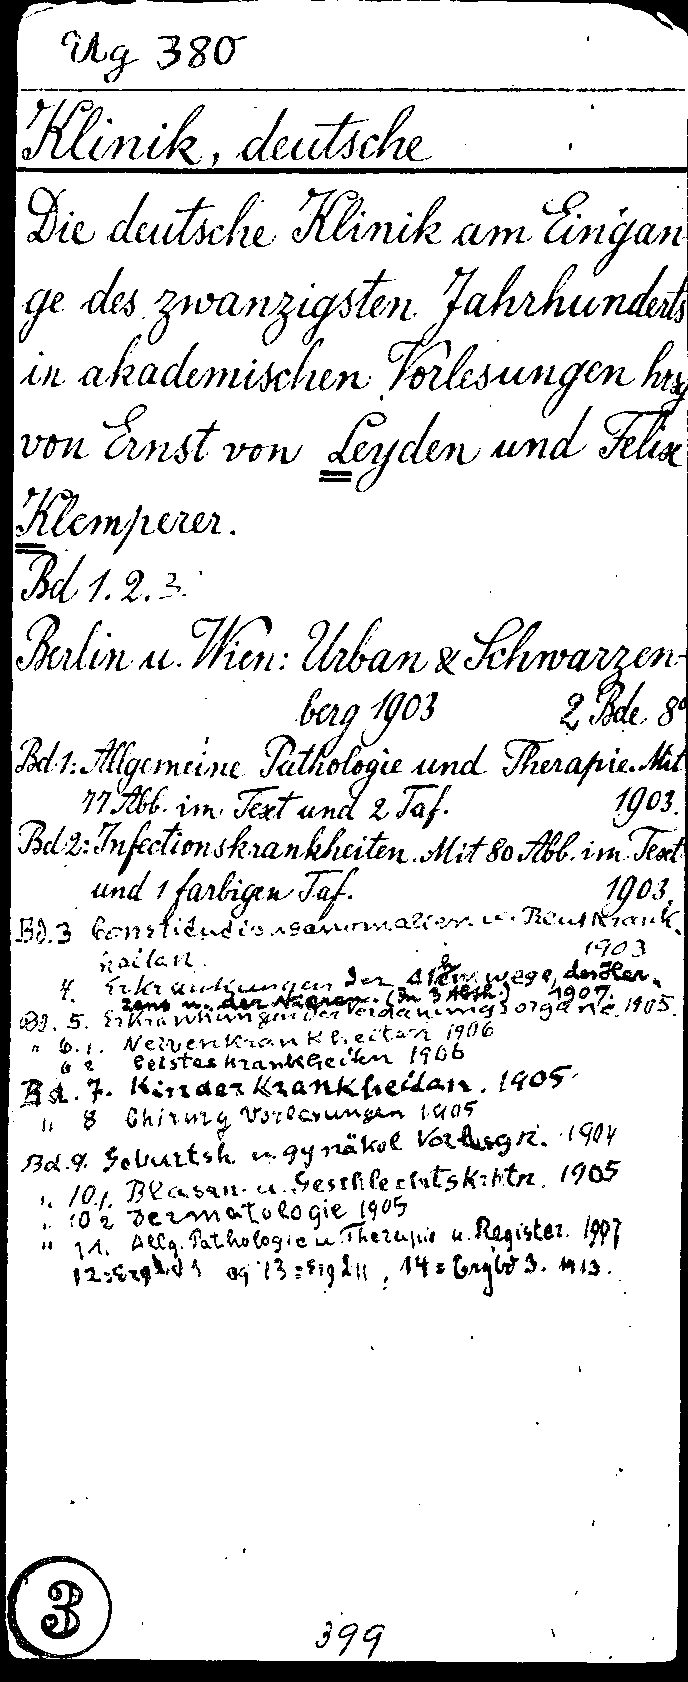 Ug 380
Klinik, deutsche
Die deutsche Klinik am Eingan-
ge des zwanzigsten Jahrhunderts
in akademischen Vorlesungen hrsg
von Ernst von Leyden und Felix
Klemperer.
Bd 1. 2. 3.
Berlin u. Wien: Urban & Schwarzen-
berg 1903 2 Bde 8°
Bd 1: Allgemeine Pathologie und Therapie. Mit
77 Abb. im Text und 2 Taf. 1903.
Bd 2: Infectionskrankheiten. Mit 80 Abb. im Text
und 1 farbigen Taf. 1903.
Bd. 3 Constitutionsanomalien u. Blutkrank-
heiten. 1903
4. Erkrankungen der Atemwege, des Her-
zens u. der Nieren. (In 3 Abth.) 1907.
Bd. 5. Erkrankungen der Verdauungsorgane. 1905.
" 6.1. Nervenkrankheiten 1906
6 2 Geisteskrankheiten 1906
Bd. 7. Kinderkrankheiten. 1905
" 8 Chirurg Vorlesungen 1905
Bd. 9. Geburtsh. u. gynäkol Vorlesgn. 1904
" 10.1. Blasen- u. Geschlechtskrktn. 1905
" 10 2 Dermatologie 1905
" 11. Allg. Pathologie u Therapie u. Register. 1907
12 = Ergbd 1 13 = Erg , 14 = Ergbd 3. 1913.
3
399